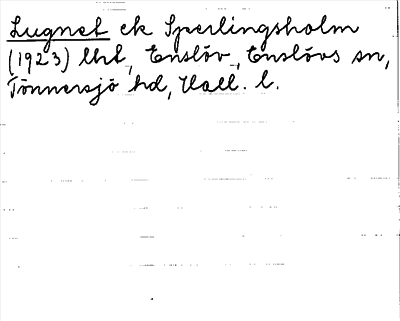 Lugnet ek Sperlingsholm
(1923) lht, Enslöv, Enslövs sn,
Tönnersjö hd, Hall. l.